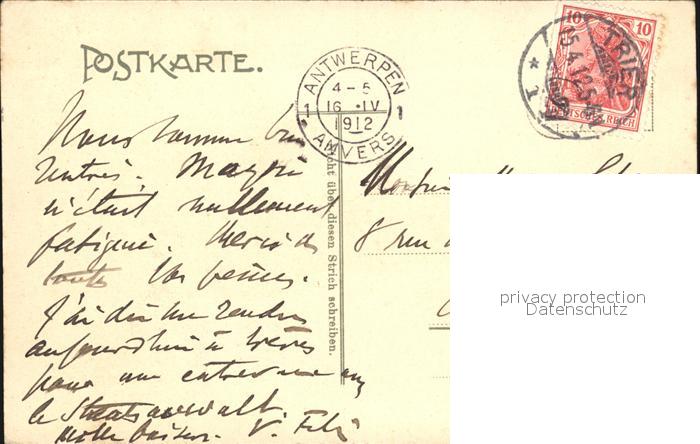 POSTKARTE.
ANTWERPEN
1 4-5 1
16 .IV
1912
ANVERS
TRIER
15.4.12.5-
* 1
10 10
DEUTSCHES REICH
Nous sommes bien
rentrés. Maggie
n'était nullement
fatiguée. Merci de
toutes vos peines.
J'ai dû me rendre
aujourd'hui à Trèves
pour une entrevue avec
le Staatsanwalt.
Mille baisers. V. Félix
cht über diesen Strich schreiben.
Monsieur
8 rue
privacy protection
Datenschutz